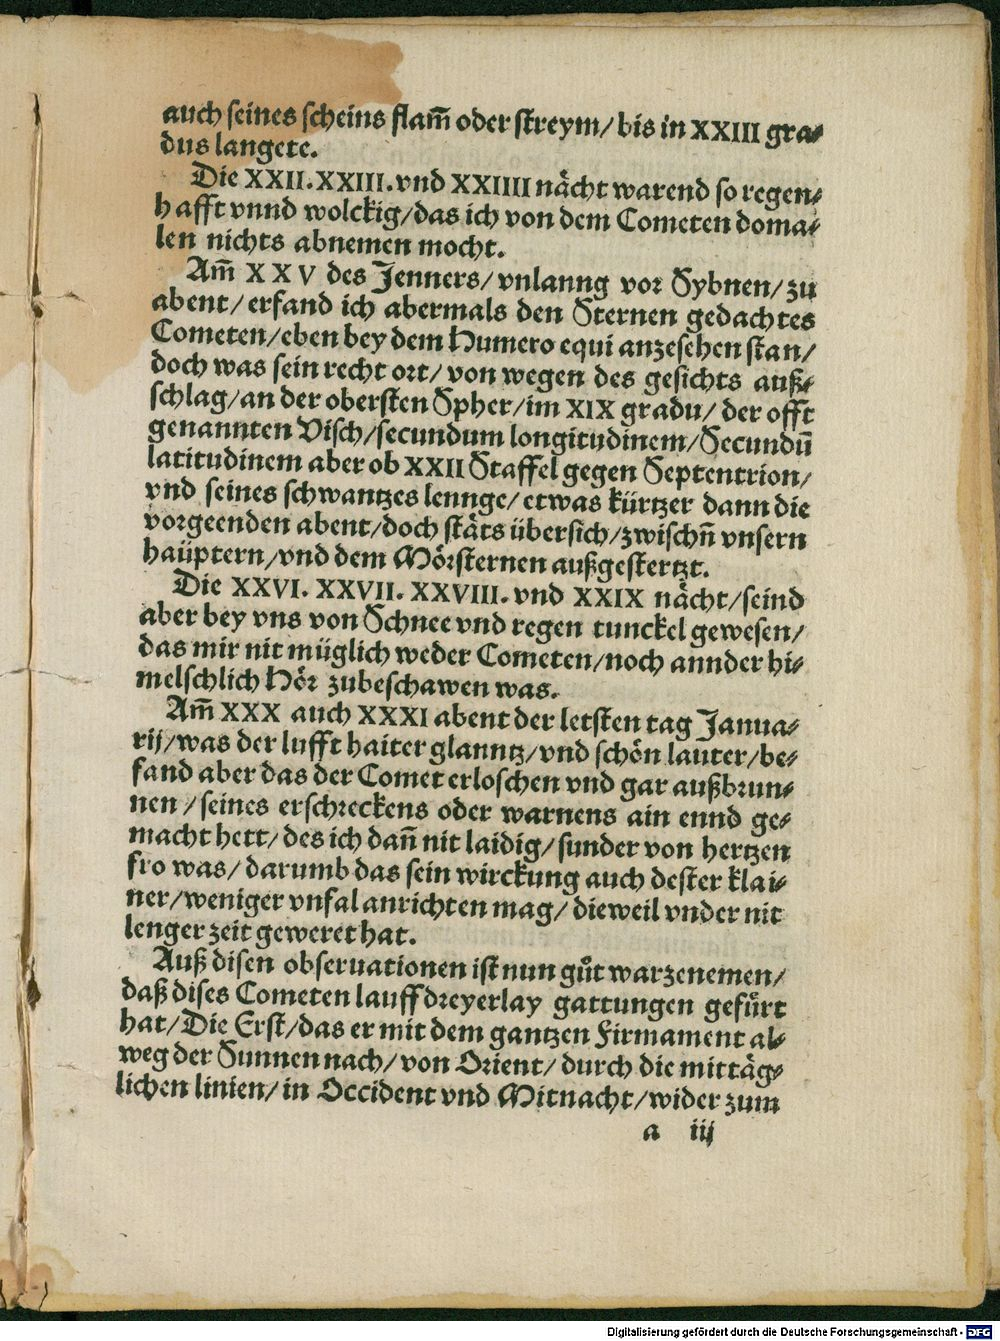 auch seines scheins flam̃ oder streym/ bis in XXIII gra⸗
dus langete.
Die XXII. XXIII. vnd XXIIII nächt warend so regen⸗
hafft vnnd wolckig/ das ich von dem Cometen doma⸗
len nichts abnemen mocht.
Am̃ XXV des Jenners/ vnlanng vor Sybnen/ zu
abent/ erfand ich abermals den Sternen gedachtes
Cometen/ eben bey dem Humero equi anzesehen stan/
doch was sein recht ort/ von wegen des gesichts auß⸗
schlag/ an der obersten Spher/ im XIX gradu/ der offt
genannten Visch/ secundum longitudinem/ Secundũ
latitudinem aber ob XXII Staffel gegen Septentrion/
vnd seines schwantzes lennge/ etwas kürtzer dann die
vorgeenden abent/ doch stäts übersich/ zwischñ vnsern
haüptern/ vnd dem Mörsternen außgestertzt.
Die XXVI. XXVII. XXVIII. vnd XXIX nächt/ seind
aber bey vns von Schnee vnd regen tunckel gewesen/
das mir nit müglich weder Cometen/ noch annder hi⸗
melschlich Hör zubeschawen was.
Am̃ XXX auch XXXI abent der letsten tag Janua⸗
rij/ was der lufft haiter glanntz/ vnd schön lauter/ be⸗
fand aber das der Comet erloschen vnd gar außbrun⸗
nen/ seines erschreckens oder warnens ain ennd ge⸗
macht hett/ des ich dañ nit laidig/ sunder von hertzen
fro was/ darumb das sein wirckung auch dester klai⸗
ner/ weniger vnfal anrichten mag/ dieweil vnder nit
lenger zeit geweret hat.
Auß disen obseruationen ist nun gůt warzenemen/
daß dises Cometen lauff dreyerlay gattungen gefürt
hat/ Die Erst/ das er mit dem gantzen Firmament al⸗
weg der Sunnen nach/ von Orient/ durch die mittäg⸗
lichen linien/ in Occident vnd Mitnacht/ wider zum
a iij
Digitalisierung gefördert durch die Deutsche Forschungsgemeinschaft - DFG